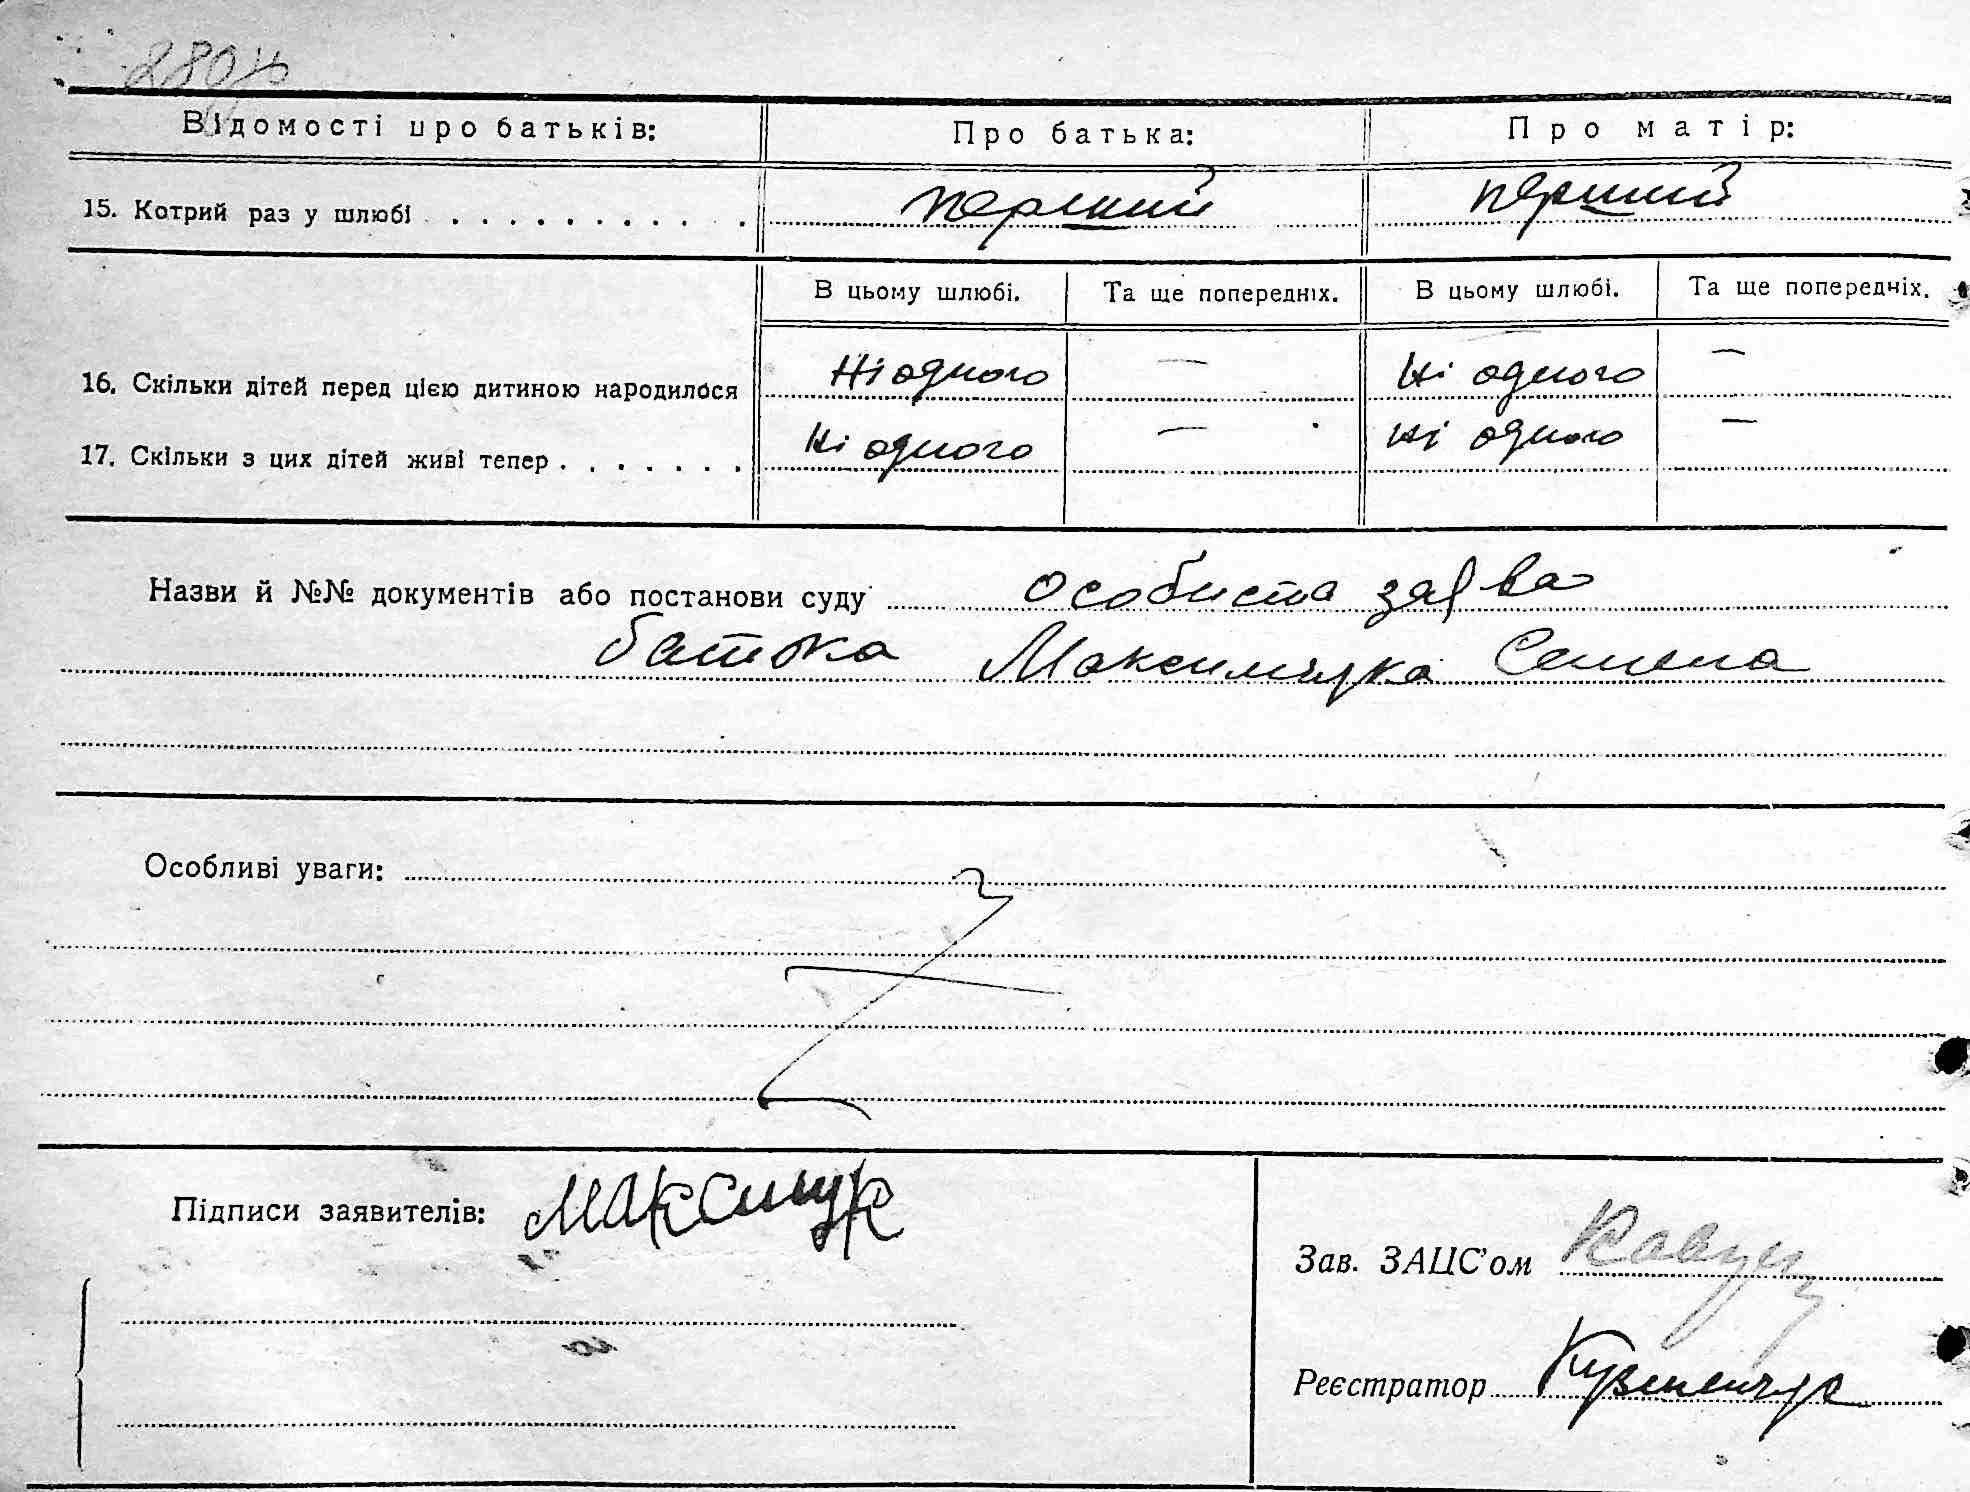 Відомості про батьків: Про батька: Про матір:
15. Котрий раз у шлюбі . . . . . . . . . . . перший перший
В цьому шлюбі. Та ще попередніх. В цьому шлюбі. Та ще попередніх.
16. Скільки дітей перед цією дитиною народилося Ні одного — Ні одного —
17. Скільки з цих дітей живі тепер . . . . . . . Ні одного — Ні одного —
Назви й №№ документів або постанови суду особиста заява
батька Максимчука Семена
Особливі уваги:
Підписи заявителів:
Зав. ЗАЦС'ом
Реєстратор